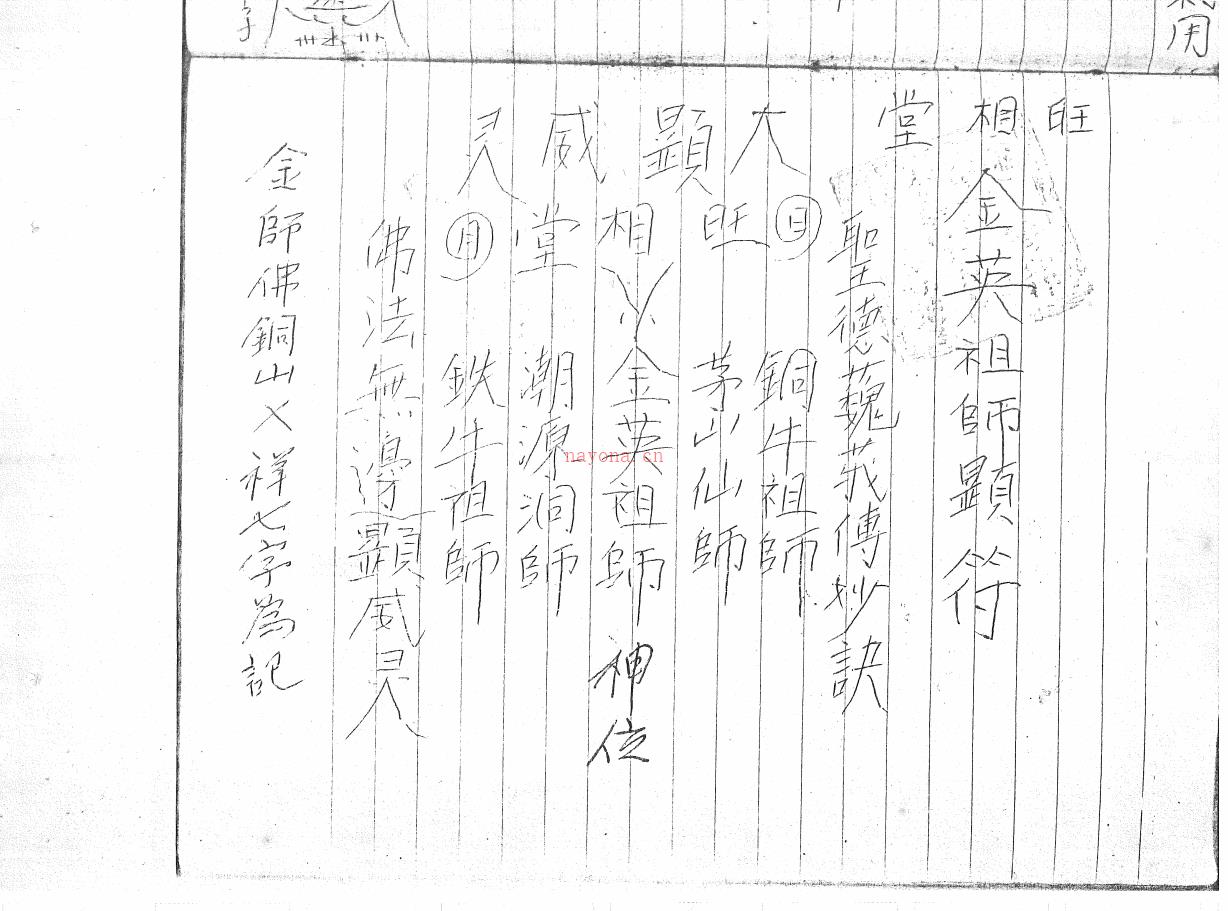 用
旺
相
堂
金英祖師顯符
聖德巍莪傳妙訣
大顯威灵
日 銅牛祖師
旺 茅山仙師
相 金英祖師神位
堂 潮源洞師
月 鉄牛祖師
佛法無邊顯威灵
金師佛銅山乂祥七字為記
字
nayona.cn